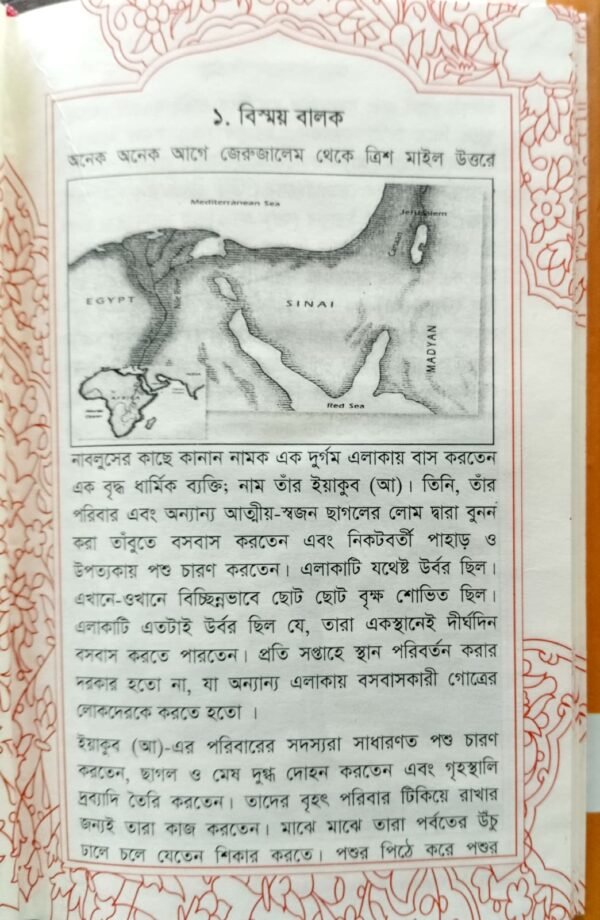 ১. বিস্ময় বালক
অনেক অনেক আগে জেরুজালেম থেকে ত্রিশ মাইল উত্তরে
Mediterranean Sea
Jerusalem
Canan
EGYPT
Nile River
SINAI
MADYAN
AFRICA
Red Sea
নাবলুসের কাছে কানান নামক এক দুর্গম এলাকায় বাস করতেন
এক বৃদ্ধ ধার্মিক ব্যক্তি; নাম তাঁর ইয়াকুব (আ)। তিনি, তাঁর
পরিবার এবং অন্যান্য আত্মীয়-স্বজন ছাগলের লোম দ্বারা বুনন
করা তাঁবুতে বসবাস করতেন এবং নিকটবর্তী পাহাড় ও
উপত্যকায় পশু চারণ করতেন। এলাকাটি যথেষ্ট উর্বর ছিল।
এখানে-ওখানে বিচ্ছিন্নভাবে ছোট ছোট বৃক্ষ শোভিত ছিল।
এলাকাটি এতটাই উর্বর ছিল যে, তারা একস্থানেই দীর্ঘদিন
বসবাস করতে পারতেন। প্রতি সপ্তাহে স্থান পরিবর্তন করার
দরকার হতো না, যা অন্যান্য এলাকায় বসবাসকারী গোত্রের
লোকদেরকে করতে হতো ।
ইয়াকুব (আ)-এর পরিবারের সদস্যরা সাধারণত পশু চারণ
করতেন, ছাগল ও মেষ দুগ্ধ দোহন করতেন এবং গৃহস্থালি
দ্রব্যাদি তৈরি করতেন। তাদের বৃহৎ পরিবার টিকিয়ে রাখার
জন্যই তারা কাজ করতেন। মাঝে মাঝে তারা পর্বতের উঁচু
ঢালে চলে যেতেন শিকার করতে। পশুর পিঠে করে পশুর